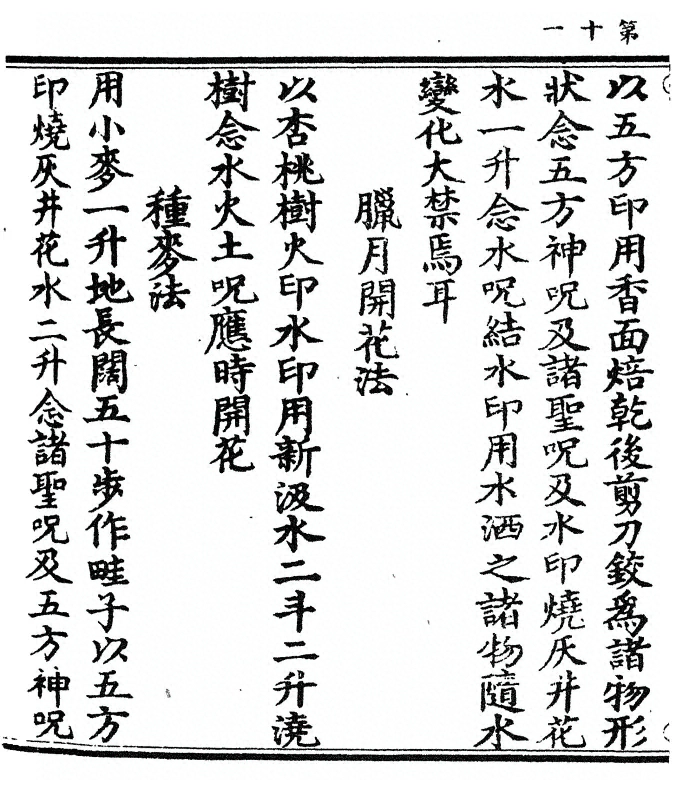 第十一
以五方印用香面焙乾後剪刀鉸爲諸物形
狀念五方神呪及諸聖呪及水印燒灰井花
水一升念水呪結水印用水洒之諸物隨水
變化大禁焉耳
臘月開花法
以杏桃樹火印水印用新汲水二斗二升澆
樹念水火土呪應時開花
種麥法
用小麥一升地長闊五十步作畦子以五方
印燒灰井花水二升念諸聖呪及五方神呪